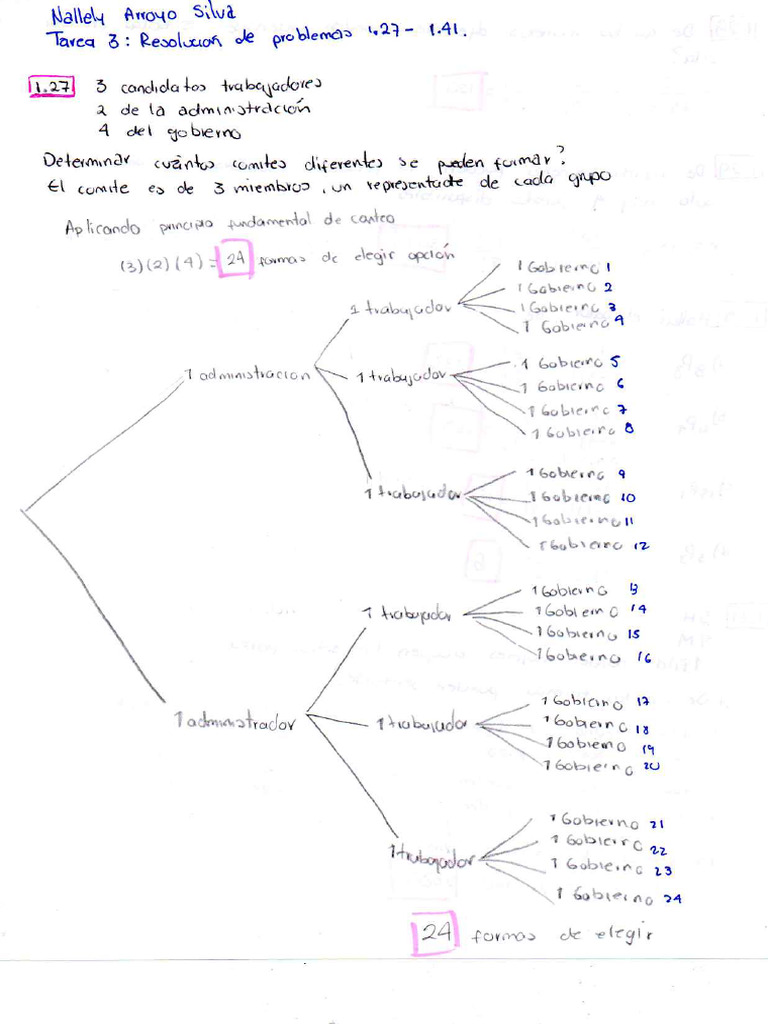 Nallely Arroyo Silva
Tarea 3: Resolución de problemas 1.27 - 1.41.
1.27 3 candidatos trabajadores
2 de la administración
4 del gobierno
Determinar cuántos comites diferentes se pueden formar?
El comite es de 3 miembros, un representate de cada grupo
Aplicando principio fundamental de conteo
(3)(2)(4) = 24 formas de elegir opción
1 administracion
1 trabajador
1 Gobierno 1
1 Gobierno 2
1 Gobierno 3
1 Gobierno 4
1 trabajador
1 Gobierno 5
1 Gobierno 6
1 Gobierno 7
1 Gobierno 8
1 trabajador
1 Gobierno 9
1 Gobierno 10
1 Gobierno 11
1 Gobierno 12
1 administrador
1 trabajador
1 Gobierno 13
1 Gobierno 14
1 Gobierno 15
1 Gobierno 16
1 trabajador
1 Gobierno 17
1 Gobierno 18
1 Gobierno 19
1 Gobierno 20
1 trabajador
1 Gobierno 21
1 Gobierno 22
1 Gobierno 23
1 Gobierno 24
24 formas de elegir